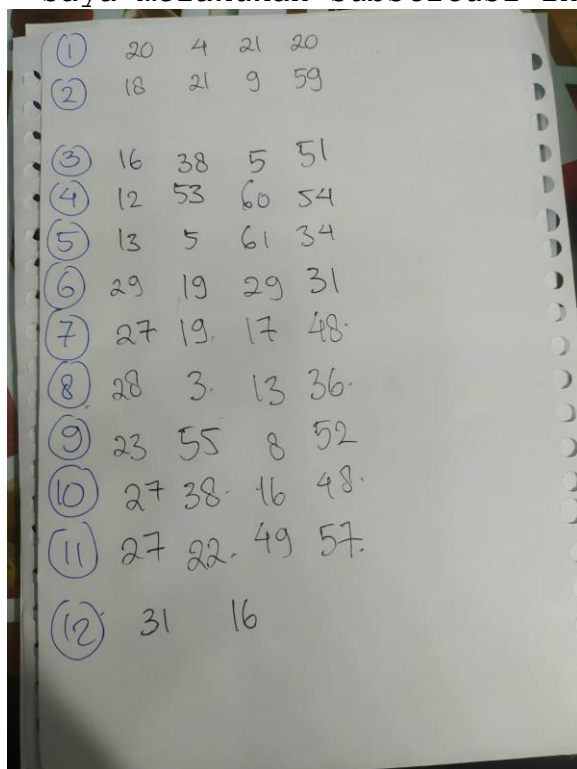 ① 20 4 21 20
② 18 21 9 59
③ 16 38 5 51
④ 12 53 60 54
⑤ 13 5 61 34
⑥ 29 19 29 31
⑦ 27 19. 17 48.
⑧ 28 3. 13 36.
⑨ 23 55 8 52
⑩ 27 38. 16 48.
⑪ 27 22. 49 57.
⑫ 31 16